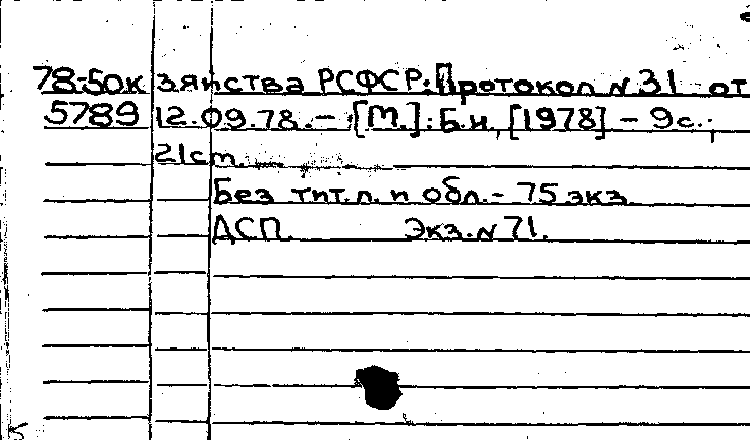 78-50к зяйства РСФСР: Протокол N 31 от
5789 12.09.78. - [М.]: Б.и., [1978] - 9с.;
21cm.
Без тит.л. и обл. - 75 экз.
ДСП. Экз. N 71.